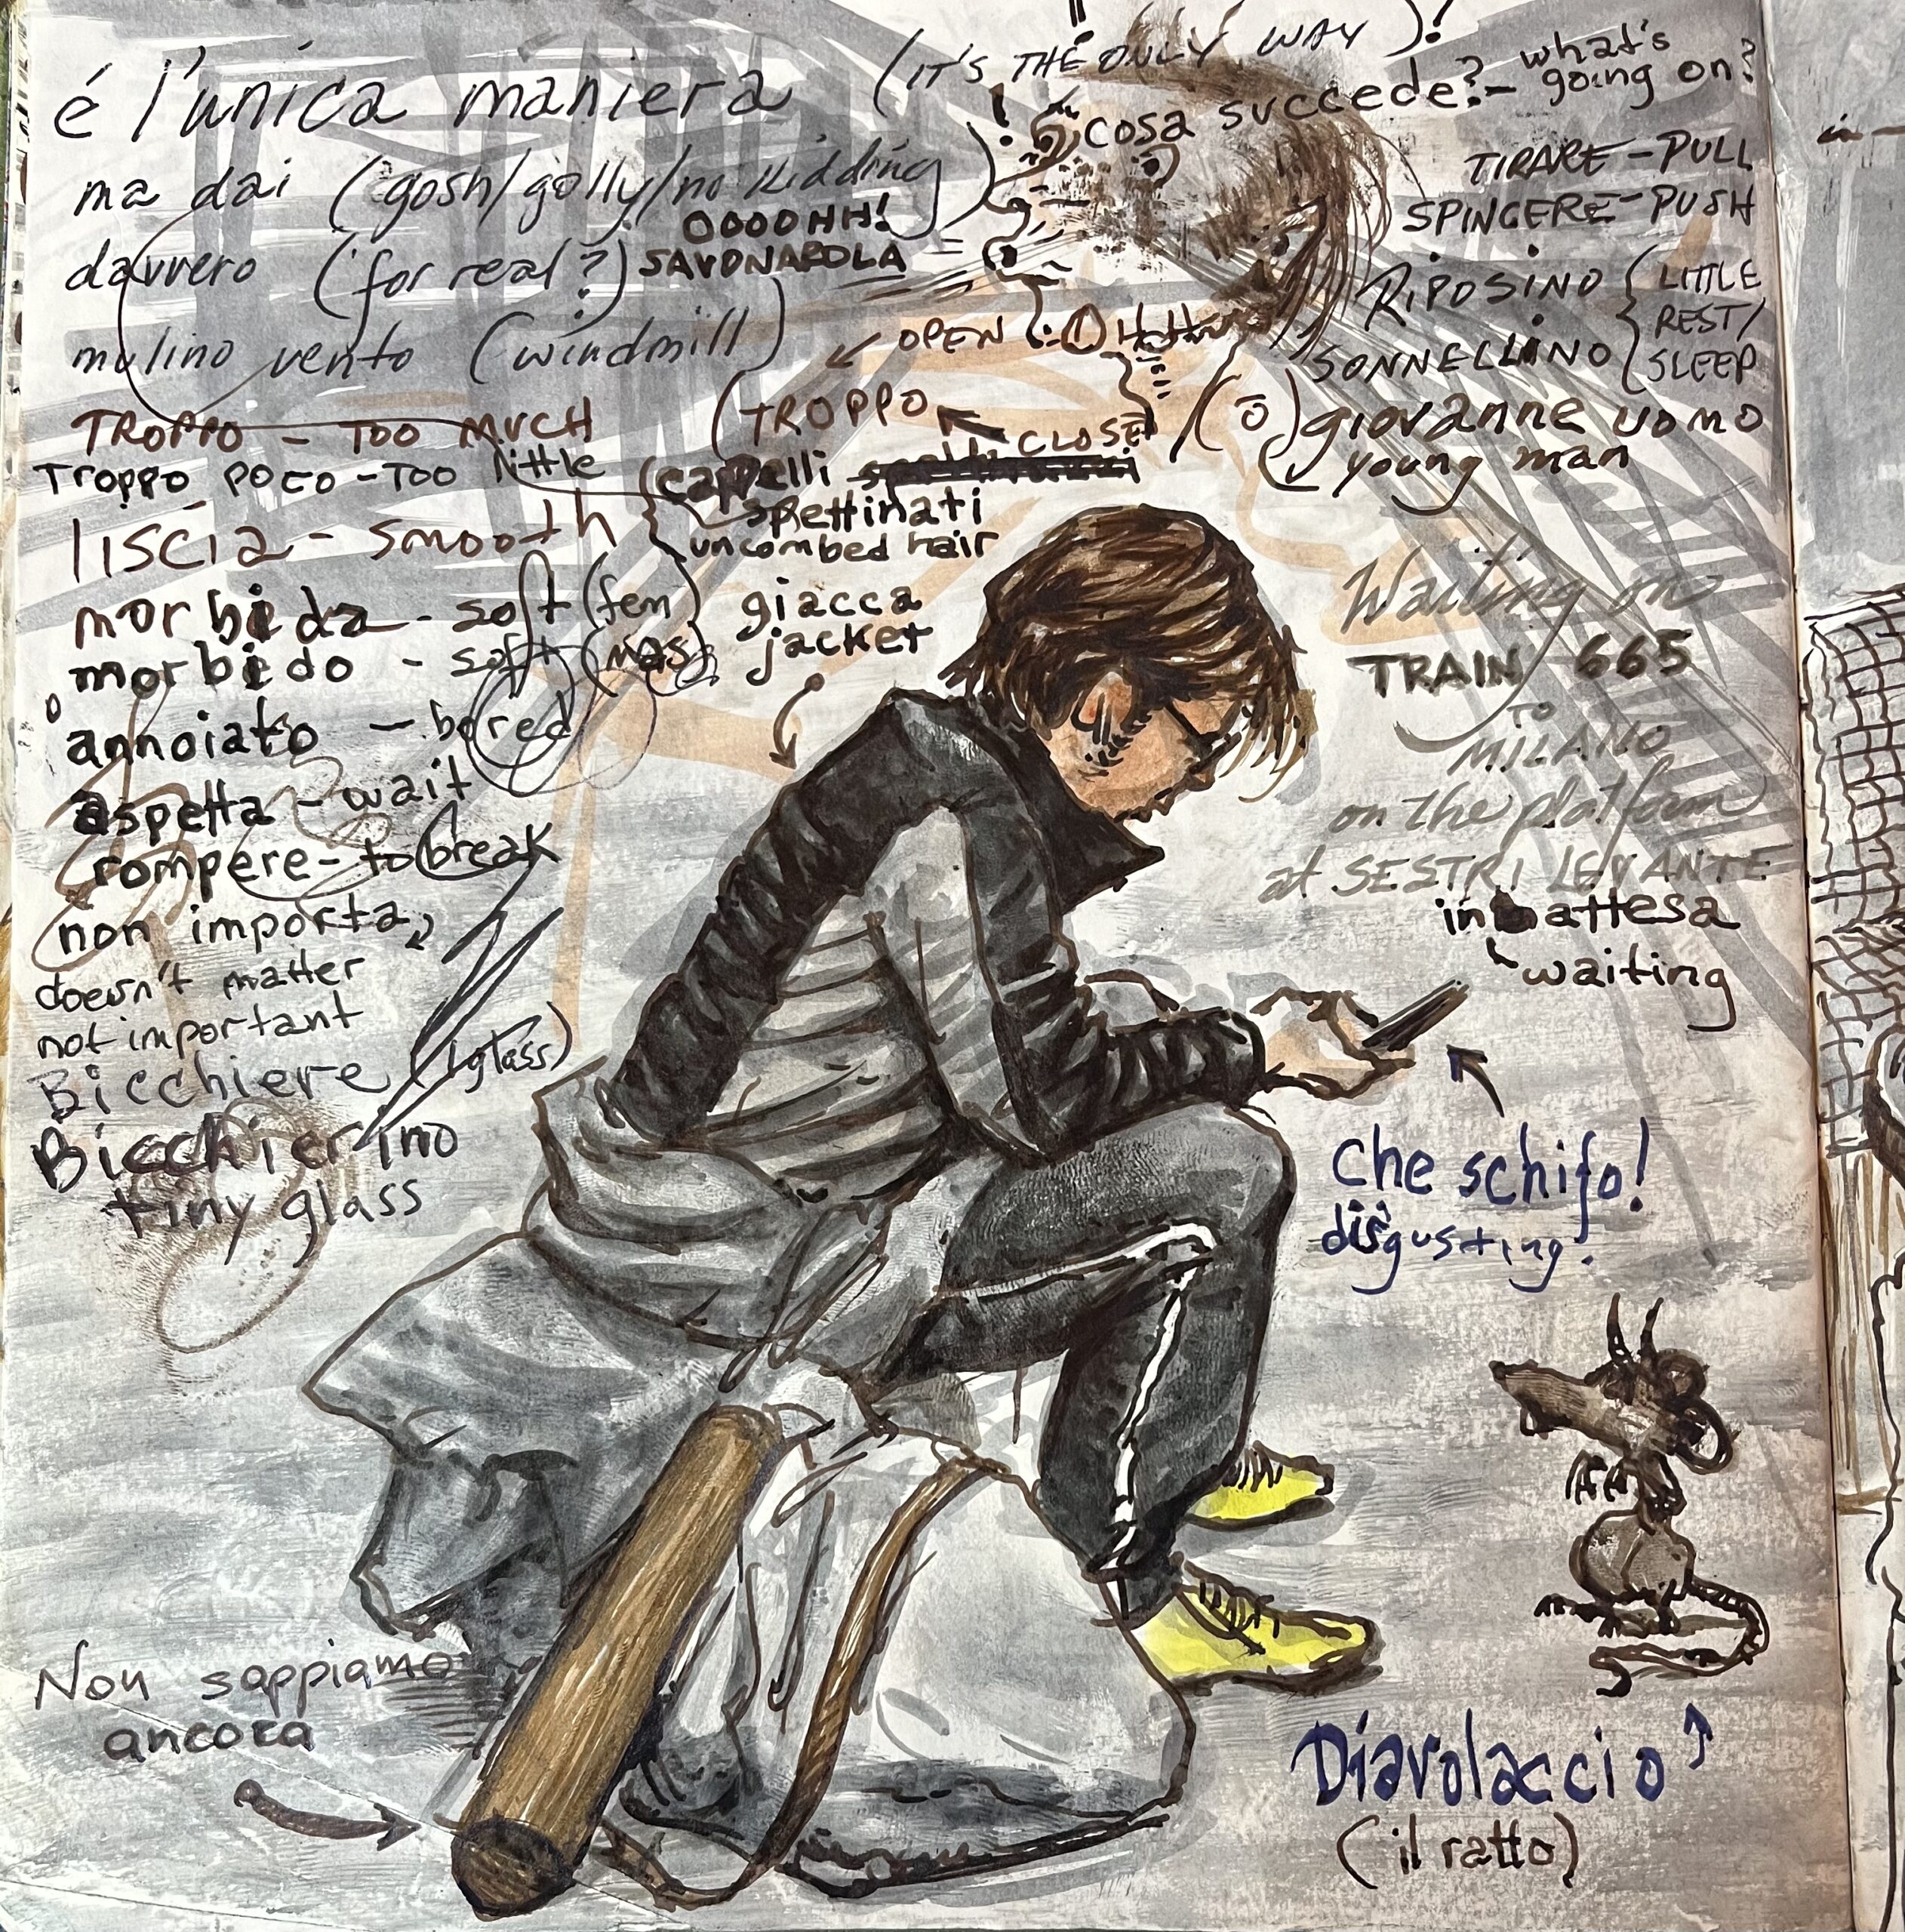 é l'unica maniera (IT'S THE ONLY WAY)!
ma dai (gosh/golly/no kidding)
OOOOHH!
SAVONAROLA
davvero (for real?)
mulino vento (windmill)
TROPPO - TOO MUCH
TROPPO POCO - TOO little
liscia - smooth
morbida - soft (fem)
morbido - soft (mas)
annoiato - bored
aspetta - wait
rompere - to break
non importa
doesn't matter
not important
Bicchiere (glass)
Bicchierino
tiny glass
cosa succede? - what's going on?
TIRARE - PULL
SPINGERE - PUSH
RIPOSINO
SONNELLINO
LITTLE
REST/
SLEEP
OPEN
(TROPPO
CLOSE
(o) giovanne uomo
young man
cappelli
spettinati
uncombed hair
giacca
jacket
Waiting on
TRAIN 665
TO
MILANO
on the platform
at SESTRI LEVANTE
in attesa
waiting
che schifo!
disgusting!
Non sappiamo
ancora
Diavolaccio
(il ratto)